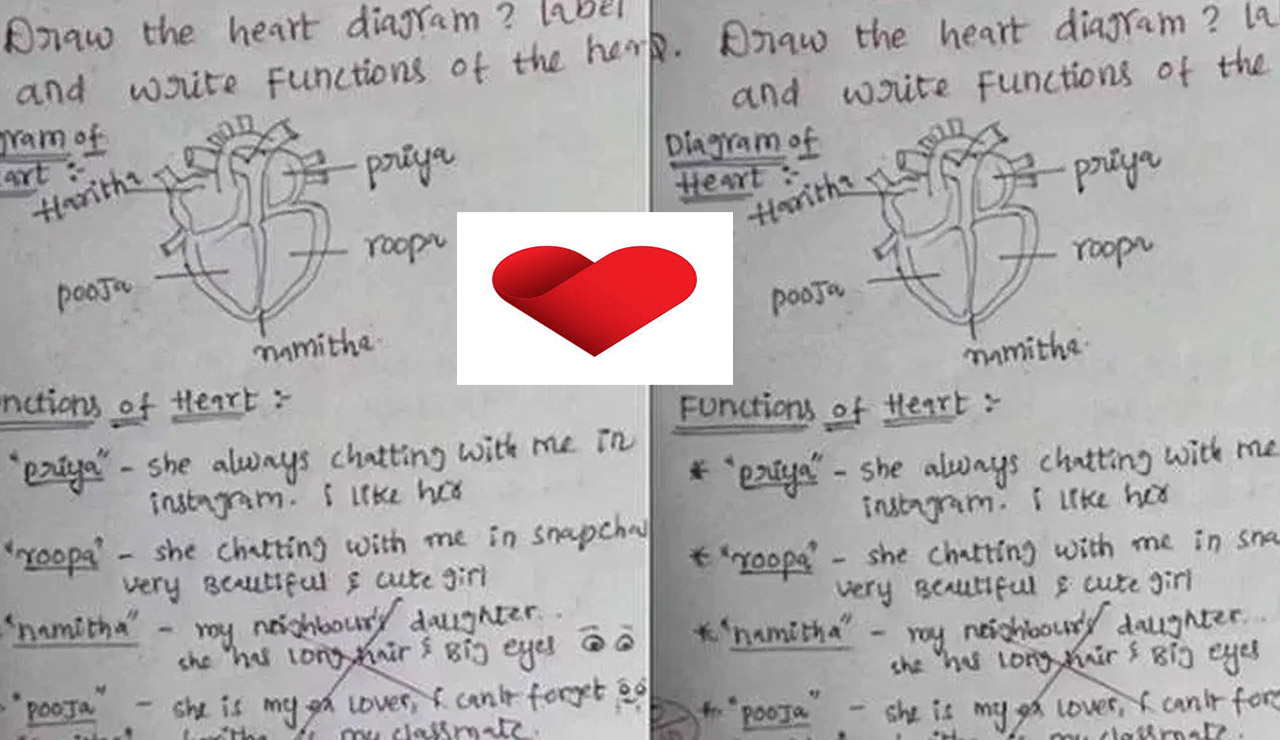 Draw the heart diagram ? label
and write Functions of the hear
gram of
art :-
Haritha
priya
roopa
pooJa
namitha.
nctions of Heart :-
"priya" - she always chatting with me in
instagram. i like her
"roopa" - she chatting with me in snapcha
very Beautiful & cute girl
"namitha" - my neighbour's daughter..
she has long hair & Big eyes
"pooJa" - she is my ex lover, i can't forget
my classmate.
Draw the heart diagram ? la
and write Functions of the
Diagram of
Heart :-
Haritha
priya
roopa
pooJa
namitha.
Functions of Heart :-
* "priya" - she always chatting with me
instagram. i like her
* "roopa" - she chatting with me in sna
very Beautiful & cute girl
* "namitha" - my neighbour's daughter..
she has long hair & Big eyes
* "pooJa" - she is my ex lover, i can't forg
my classmate.